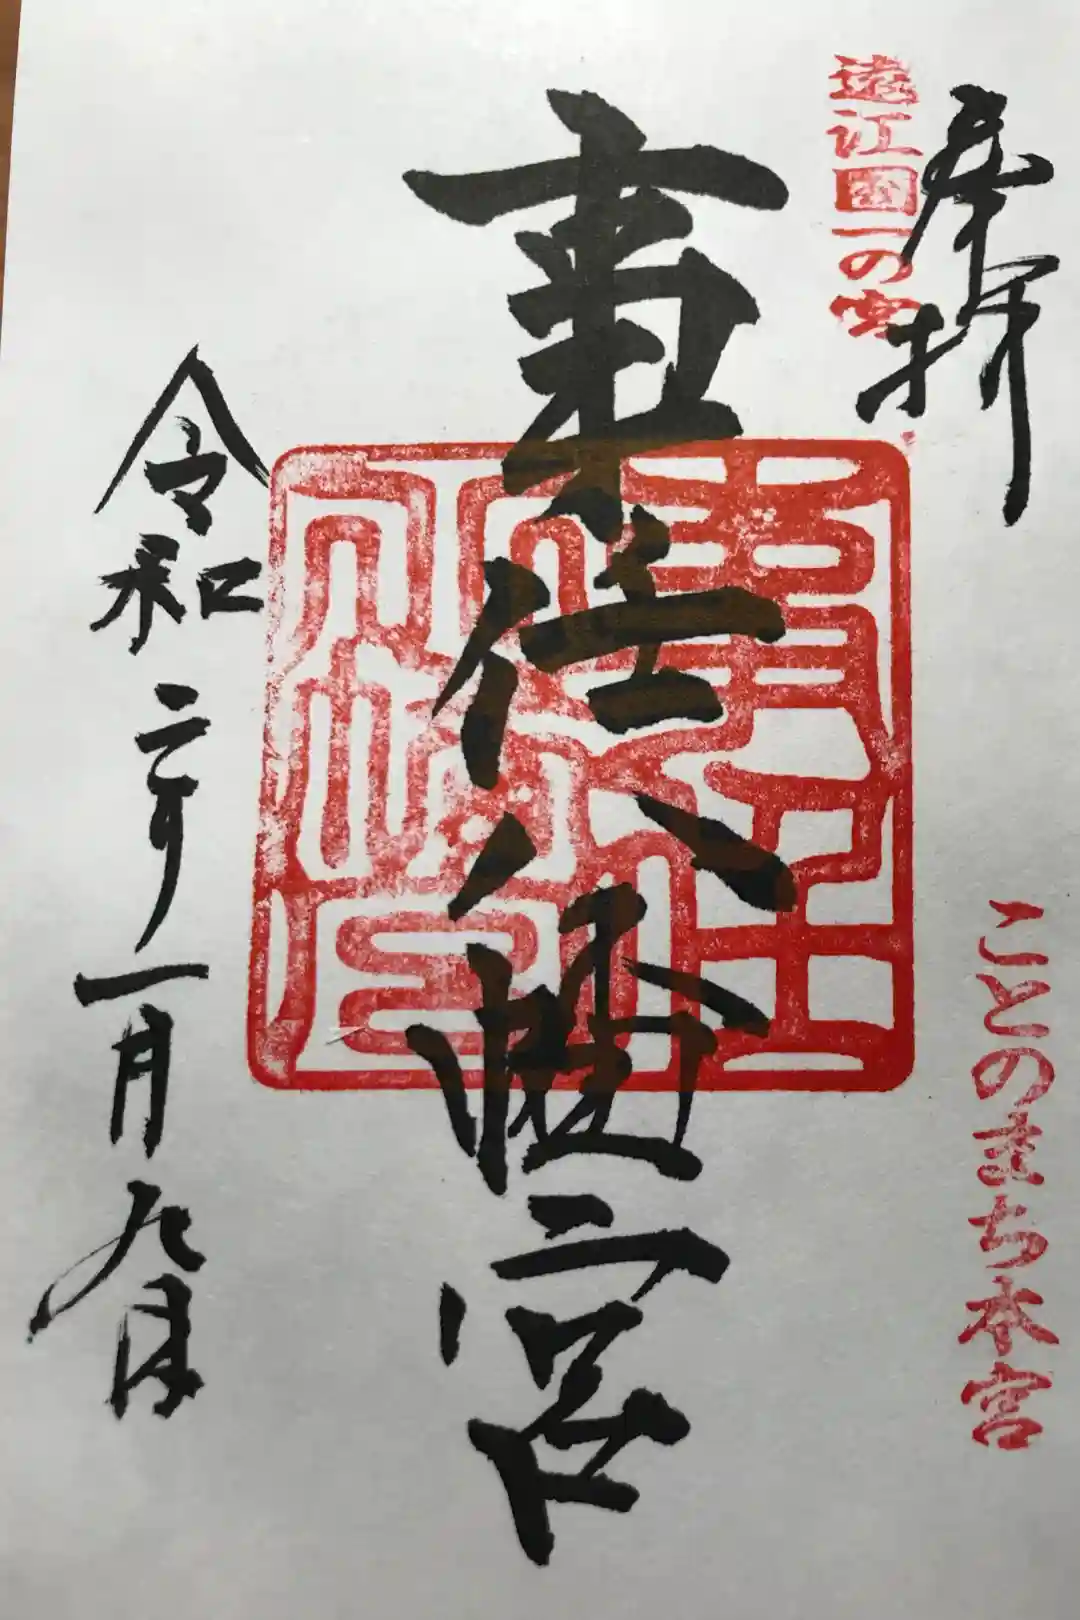 奉拝
遠江國一の宮
ことのまち本宮
事任八幡宮
令和二年一月九日